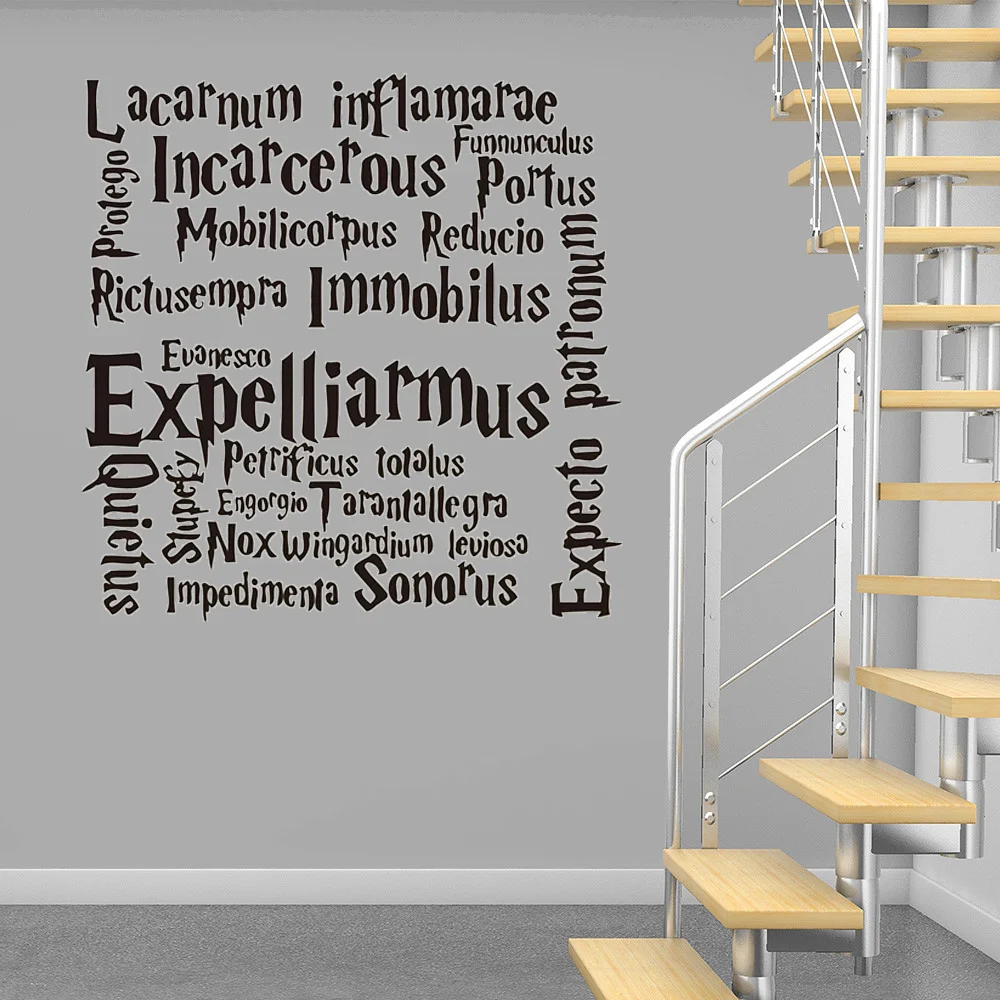 Lacarnum inflamarae
Funnunculus
Protego
Incarcerous
Portus
Mobilicorpus Reducio
Rictusempra Immobilus
Expecto patronum
Evanesco
Expelliarmus
Quietus
Stupefy
Petrificus totalus
Engorgio Tarantallegra
Nox Wingardium leviosa
Impedimenta Sonorus